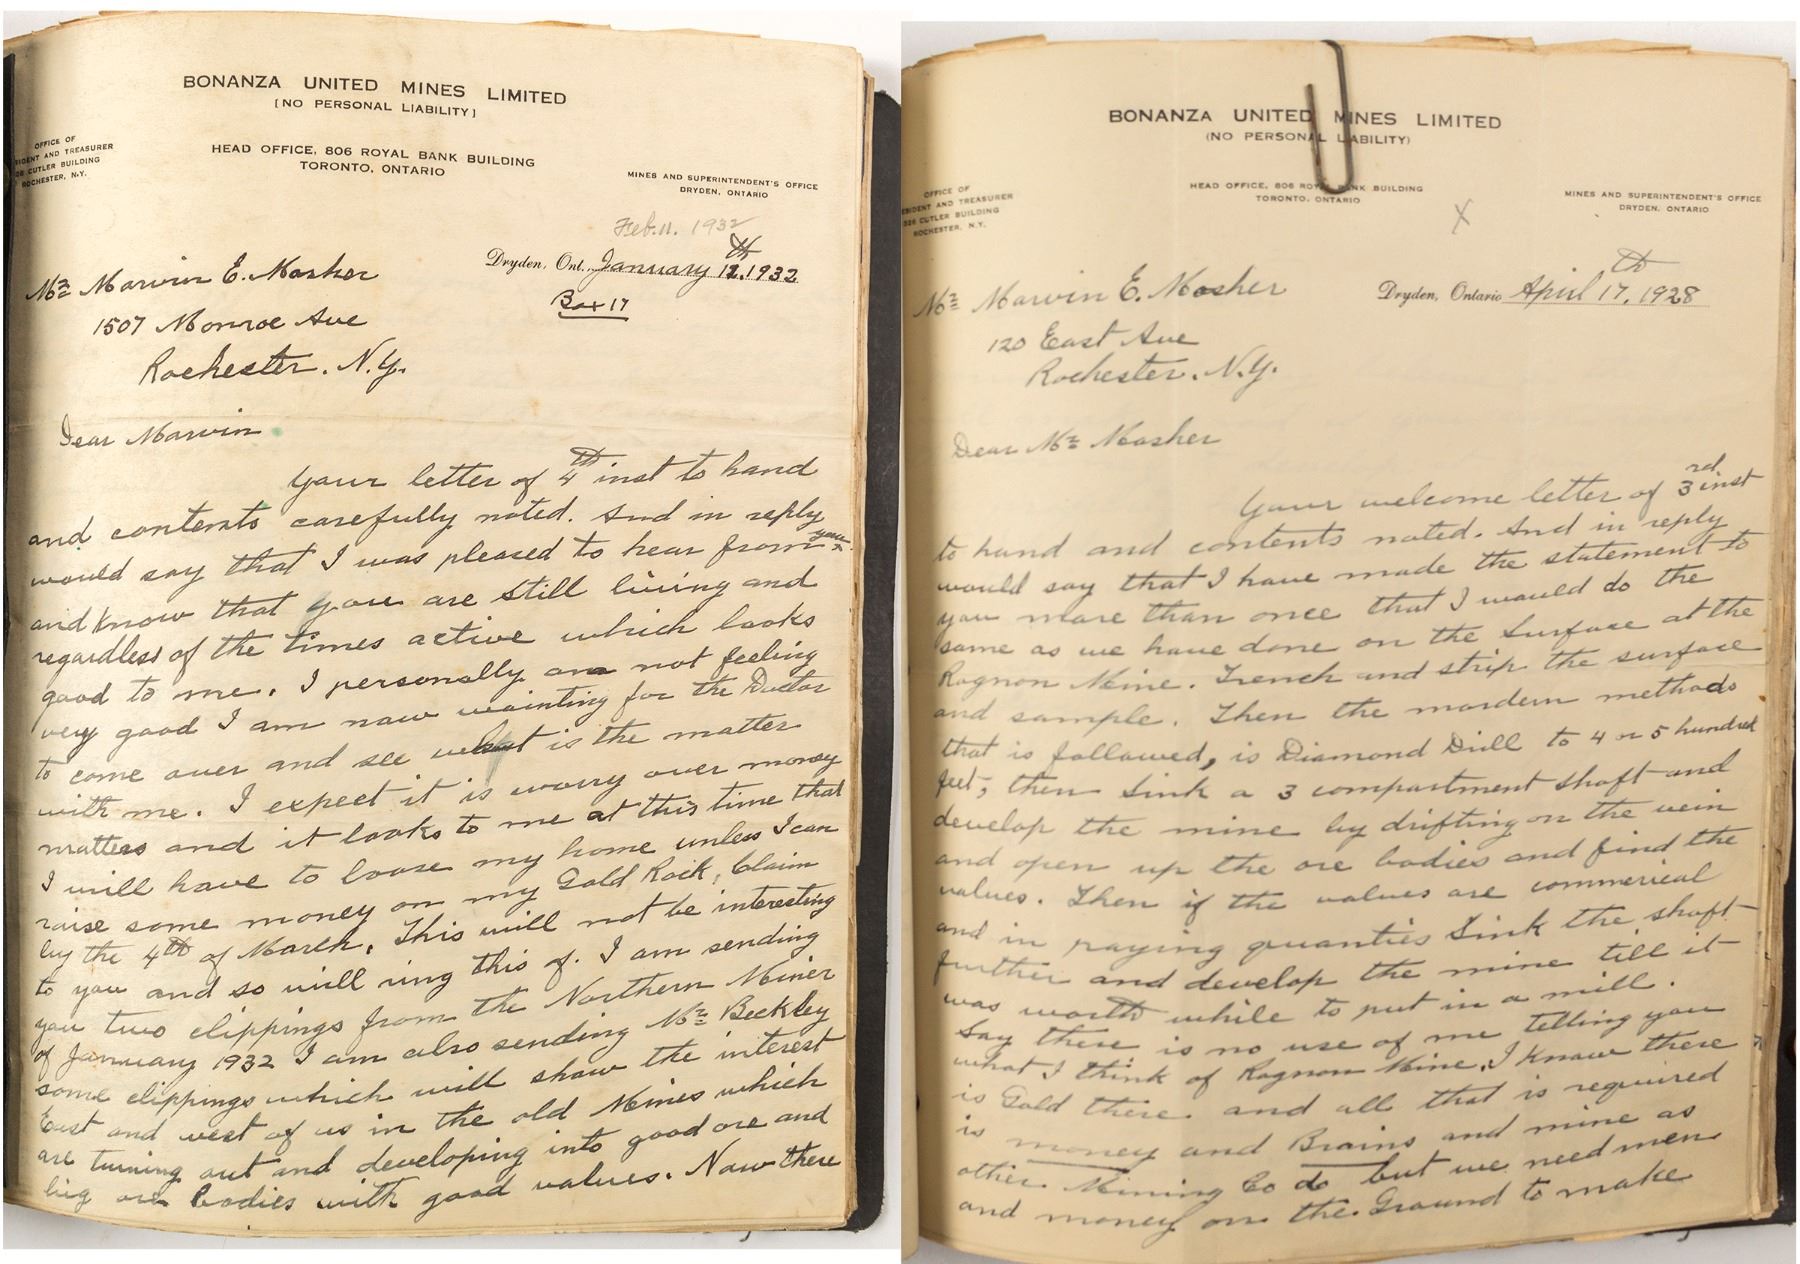 BONANZA UNITED MINES LIMITED
[NO PERSONAL LIABILITY]
OFFICE OF
IDENT AND TREASURER
CUTLER BUILDING
ROCHESTER, N.Y.
HEAD OFFICE, 806 ROYAL BANK BUILDING
TORONTO, ONTARIO
MINES AND SUPERINTENDENT'S OFFICE
DRYDEN, ONTARIO
Feb. 11. 1932
Dryden, Ont., January 12th 1932
Box 17
Mr Marvin E. Mosher
1507 Monroe Ave
Rochester. N.Y.
Dear Marvin
Your letter of 4th inst to hand
and contents carefully noted. And in reply
would say that I was pleased to hear from you
and know that you are still living and
regardless of the times active which looks
good to me. I personally am not feeling
very good I am now wainting for the Doctor
to come over and see what is the matter
with me. I expect it is worry over money
matters and it looks to me at this time that
I will have to loose my home unless I can
raise some money on my Gold Rock, Claim
by the 4th of March. This will not be interesting
to you and so will ring this of. I am sending
you two clippings from the Northern Miner
of January 1932 I am also sending Mr Beckley
some clippings which will show the interest
East and west of us in the old Mines which
are turning out and developing into good ore and
big ore bodies with good values. Now there
BONANZA UNITED MINES LIMITED
(NO PERSONAL LIABILITY)
OFFICE OF
SIDENT AND TREASURER
CUTLER BUILDING
ROCHESTER, N.Y.
HEAD OFFICE, 806 ROYAL BANK BUILDING
TORONTO, ONTARIO
MINES AND SUPERINTENDENT'S OFFICE
DRYDEN, ONTARIO
X
Dryden, Ontario April 17th, 1928
Mr Marvin E. Mosher
120 East Ave
Rochester. N.Y.
Dear Mr Mosher
Your welcome letter of 3rd inst
to hand and contents noted. And in reply
would say that I have made the statement to
you more than once that I would do the
same as we have done on the Surface at the
Rognon Mine. Trench and strip the surface
and sample. Then the mordern methods
that is followed, is Diamond Drill to 4 or 5 hundred
feet, then Sink a 3 compartment shaft and
develop the mine by drifting on the vein
and open up the ore bodies and find the
values. Then if the values are commerical
and in paying quanties Sink the shaft
further and develop the mine till it
was worth while to put in a mill.
Say there is no use of me telling you
what I think of Rognon Mine. I know there
is Gold there and all that is required
is money and Brains and mine as
other Mining Co do but we need men
and money on the Ground to make